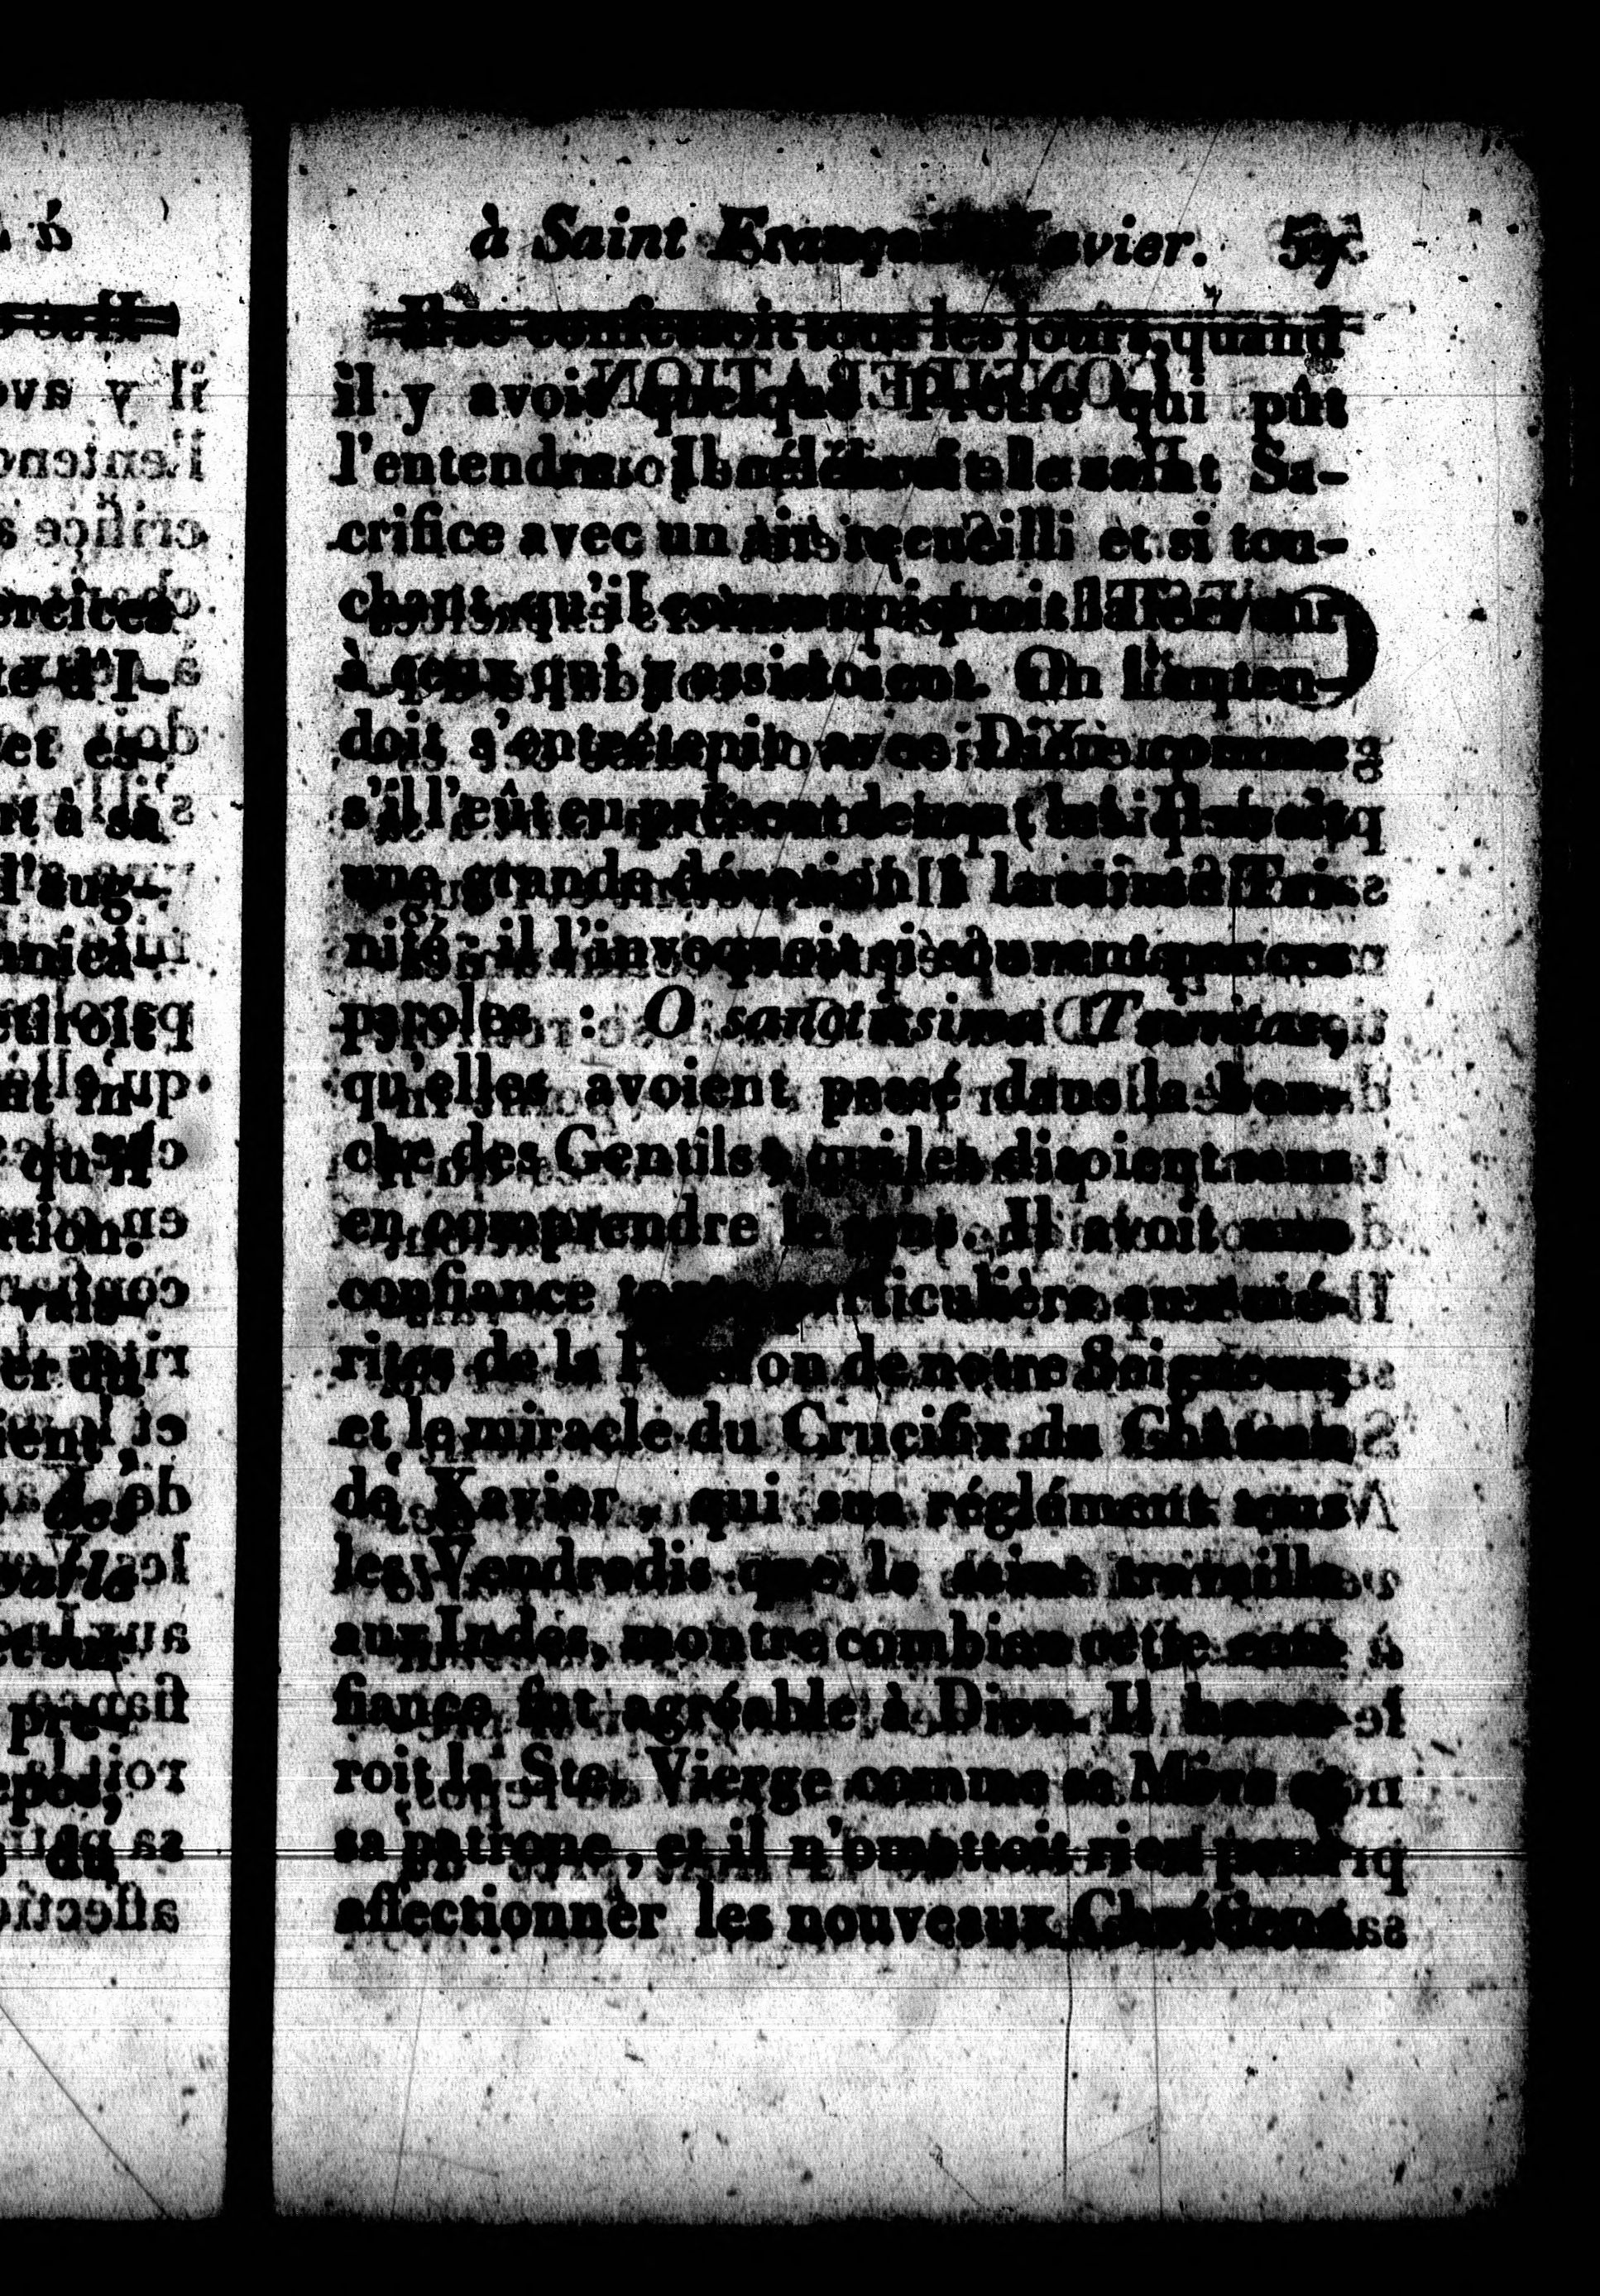 à Saint François Xavier. 59
Il se confessoit tous les jours, quand
il y avoit quelque Prêtre qui pût
l'entendre. Il célébroit le saint Sa-
crifice avec un air recueilli et si tou-
chant, qu'il communiquoit la ferveur
à ceux qui y assistoient. On l'enten-
doit s'entretenir avec Dieu comme
s'il l'eût eu présent devant lui. Il avoit
une grande dévotion à la sainte Tri-
nité; il l'invoquoit si souvent par ces
paroles : O sanctissima Trinitas,
qu'elles avoient passé dans la bou-
che des Gentils, qui les disoient sans
en comprendre le sens. Il avoit une
confiance toute particulière aux mé-
rites de la Passion de notre Seigneur,
et le miracle du Crucifix du Château
de Xavier, qui sua réglément tous
les Vendredis que le saint travailla
aux Indes, montre combien cette con-
fiance fut agréable à Dieu. Il hono-
roit la Ste. Vierge comme sa Mère et
sa patrone, et il n'omettoit rien pour
affectionner les nouveaux Chrétiens